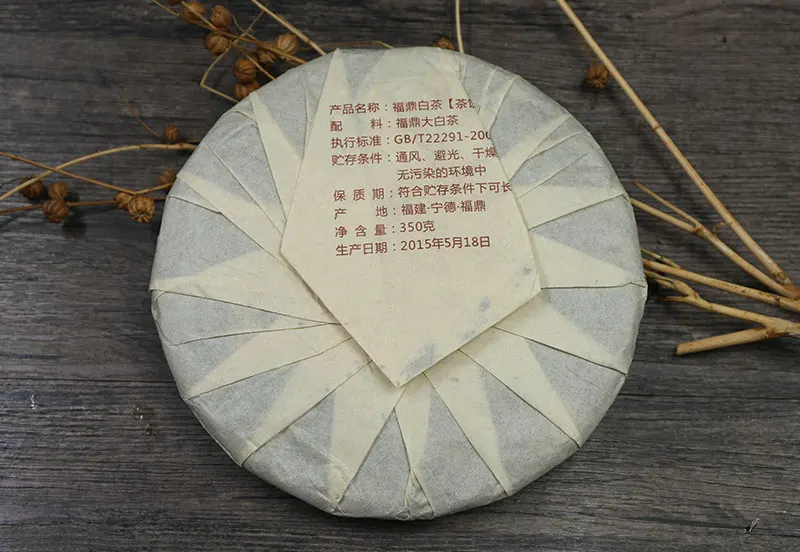 产品名称：福鼎白茶【茶
配　　料：福鼎大白茶
执行标准：GB/T22291-20
贮存条件：通风、避光、干燥
无污染的环境中
保 质 期：符合贮存条件下可长
产　　地：福建·宁德·福鼎
净 含 量：350克
生产日期：2015年5月18日